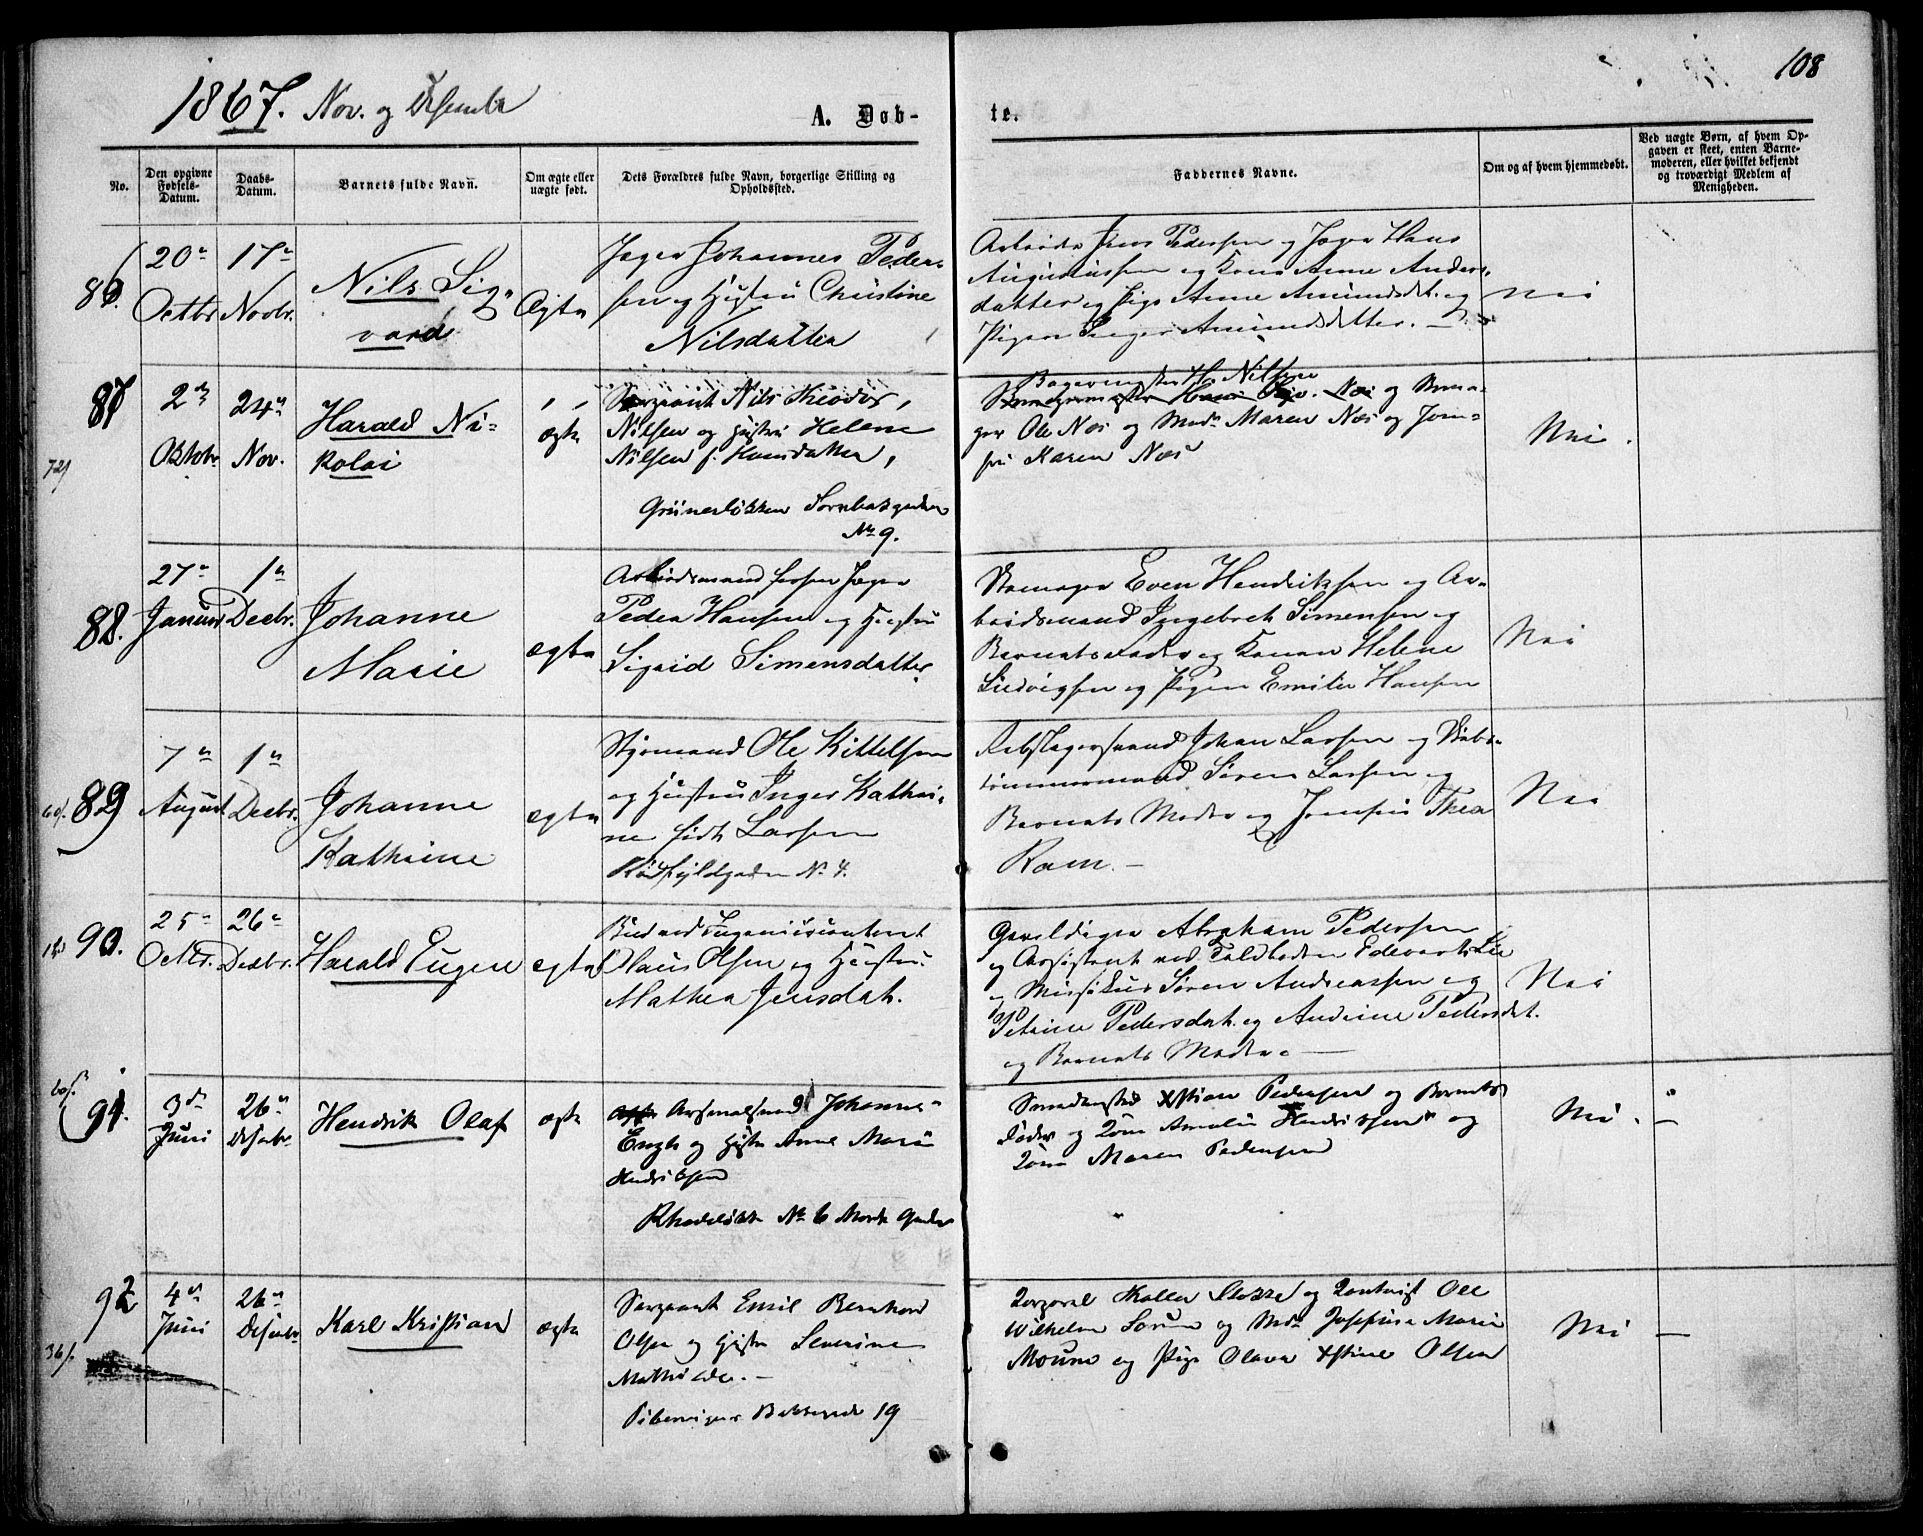 108
1867. Nov. og Desember
A. Døb-
te.
No.
Den opgivne Fødsels-Datum.
Daabs-Datum.
Barnets fulde Navn.
Om ægte eller uægte født.
Dets Forældres fulde Navn, borgerlige Stilling og Opholdssted.
Faddernes Navne.
Om og af hvem hjemmedøbt.
Ved uægte Børn, af hvem Opgaven er skeet, enten Barnemoderen, eller hvilket bekjendt og troværdigt Medlem af Menigheden.
86.
20de
Octbr
17de
Novbr.
Nils Sig-
vard
Ægte
Jæger Johannes Peder-
sen og Hustru Christine
Nilsdatter
Arbeider Jens Pedersen og Jæger Hans
Augustussen og Kone Anne Anders-
datter og Pige Anne Amundsdt. og
Pigen Amundsdatter. —
Nei
87
2den
Oktobr
24de
Nov.
Harald Ni-
kolai
ægte
Sergeant Nils
Nilsen og Hustru Helene
Nilsen f. Hansdatter,
Grünerløkken
No 9.
Bagermester H. Nilsen
Ole Næs og Mad. Maren Næs og Jom-
fru Karen Næs
Nei.
72/
88.
27de
Januar
1ste
Decbr.
Johanne
Marie
ægte
Arbeidsmand forhen Jæger
Peder Hansen og Hustru
Sigrid Simensdatter
Skomager Even Hendriksen og Ar-
beidsmand Ingebret Simensen og
Barnets Fader og Konen Helene
Ludvigsen og Pigen Emilie Hansen
Nei
89
7de
August
1ste
Decbr.
Johanne
Kathrine
ægte
Styrmand Ole Kittelsen
og Hustru Inger Kathri-
ne født Larsen
No 4.
Rebslagersvend Johan Larsen og Skibs-
tømmermand Søren Larsen og
Barnets Moder og Jomfru Thea
Ram. —
Nei
90.
25de
Octbr.
26de
Decbr.
Harald Eugen
ægte
Bud ved Ingenieurcontoret
Olaus Olsen og Hustru
Mathea Jensdat.
Gevaldiger Abraham Pedersen
og Assistent ved Toldboden Edevart Lie
og Musikus Søren Andreassen og
Petrine Pedersdat. og Andrine Pedersdat.
og Barnets Moder. —
Nei
91.
3die
Juni
26de
Desembr
Hendrik Olaf
ægte
Arsenalsmed Johannes
Engh og Hustru Anne Marie
Hendriksen
Rhodeløkk No 6
Smedemester Xstian Pedersen og Barnets
Fader og Kone Amalie Hendriksen og
Kone Maren Pedersen
Nei. —
92
4de
Juni
26de
Desembr
Karl Kristian
ægte
Sergeant Emil Bernhard
Olsen og Hustru Severine
Mathilde. —
Pibervigen Bakkegade 19
36/
Korporal og Kontorist Ole
Wilhelm og Mad. Josefine Marie
og Pige Olava Xstine Olsen
Nei —